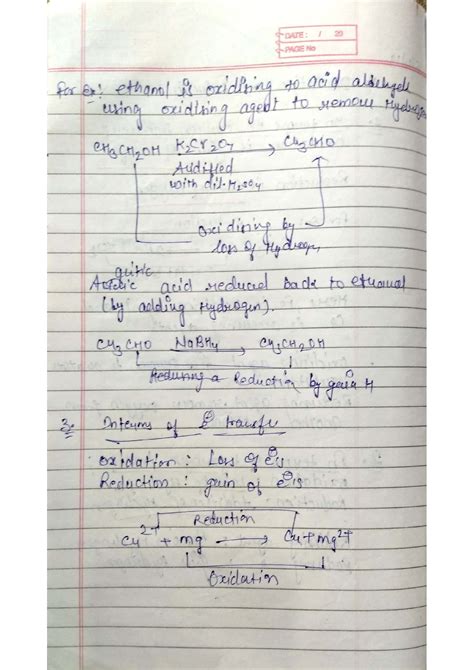 DATE: / 20
PAGE No
For Ex: ethanol is oxidising to acid aldehyde
using oxidising agent to remove Hydrogen
CH3CH2OH K2Cr2O7 → CH3CHO
Acidified
with dil. H2SO4
oxidising by
loss of Hydrogen
acid reduced back to ethanol
(by adding Hydrogen).
CH3CHO NaBH4 → CH3CH2OH
Reduction by gain H
3. Interms of e⊖ transfer
Oxidation : Loss of e⊖s
Reduction : gain of e⊖s
Reduction
Cu2+ + mg → Cu + mg2+
Oxidation